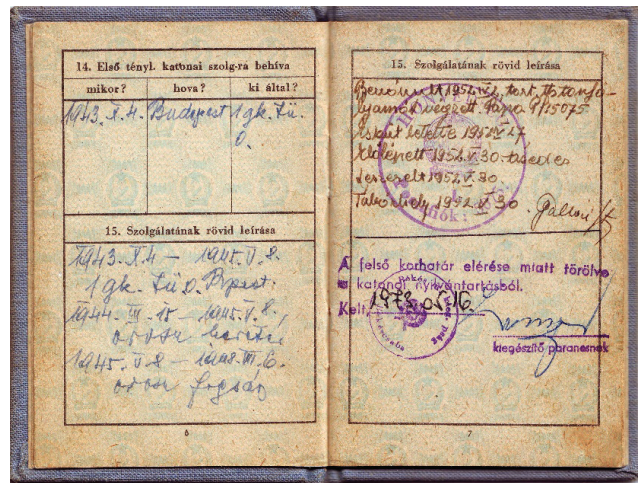 14. Első tényl. katonai szolg-ra behíva
mikor? hova? ki által?
1943. X. 4. Budapest 1 gk. Zü.
O.
15. Szolgálatának rövid leírása
1943. X. 4 — 1945. V. 8.
1 gk. Zü O. Bpest.
1944. III. 15 — 1945. V. 8,
orosz
1945. V. 8 — 1948. VII. 6.
orosz fogság
6
15. Szolgálatának rövid leírása
Bevonult 1952 tart.
végzett. Pápa
Esküt letette 1952. V. 27
1952. V. 30
Leszerelt 1952. V. 30
1952. V. 30.
A felső korhatár elérése miatt törölve
a katonai nyilvántartásból.
Kelt, 1973. 05. 16.
kiegészítő parancsnok
7